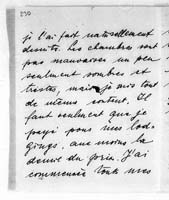 230
je l'ai fait naturellement
ensuite. Les chambres sont
pas mauvaises un peu
seulement sombres et
tristes, mais je suis tout
de même content. Il
faut seulement que je
paye pour mes lod-
gings, au moins la
J'ai
commencé toutes mes